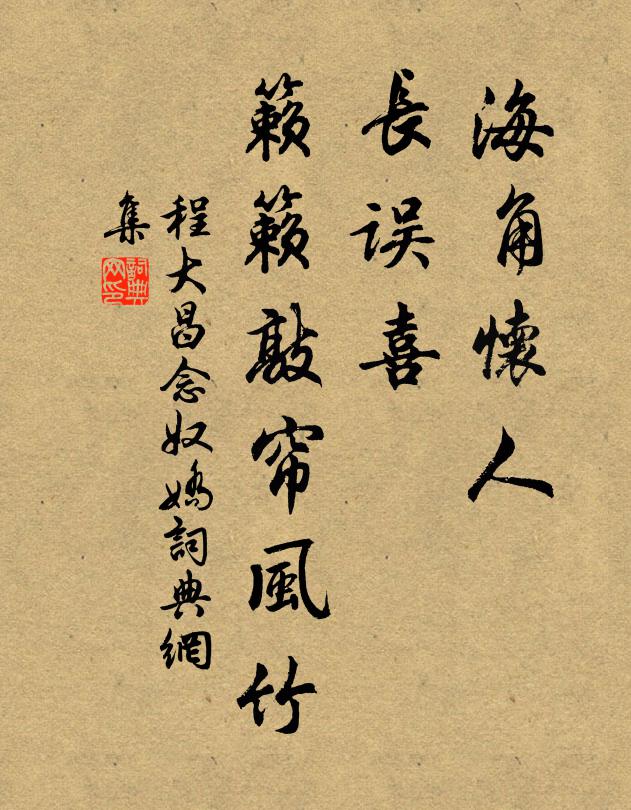 海角懷人
長误喜
籟籟敲帘風竹
程大昌念奴嬌詞典網
集
詞典
网印